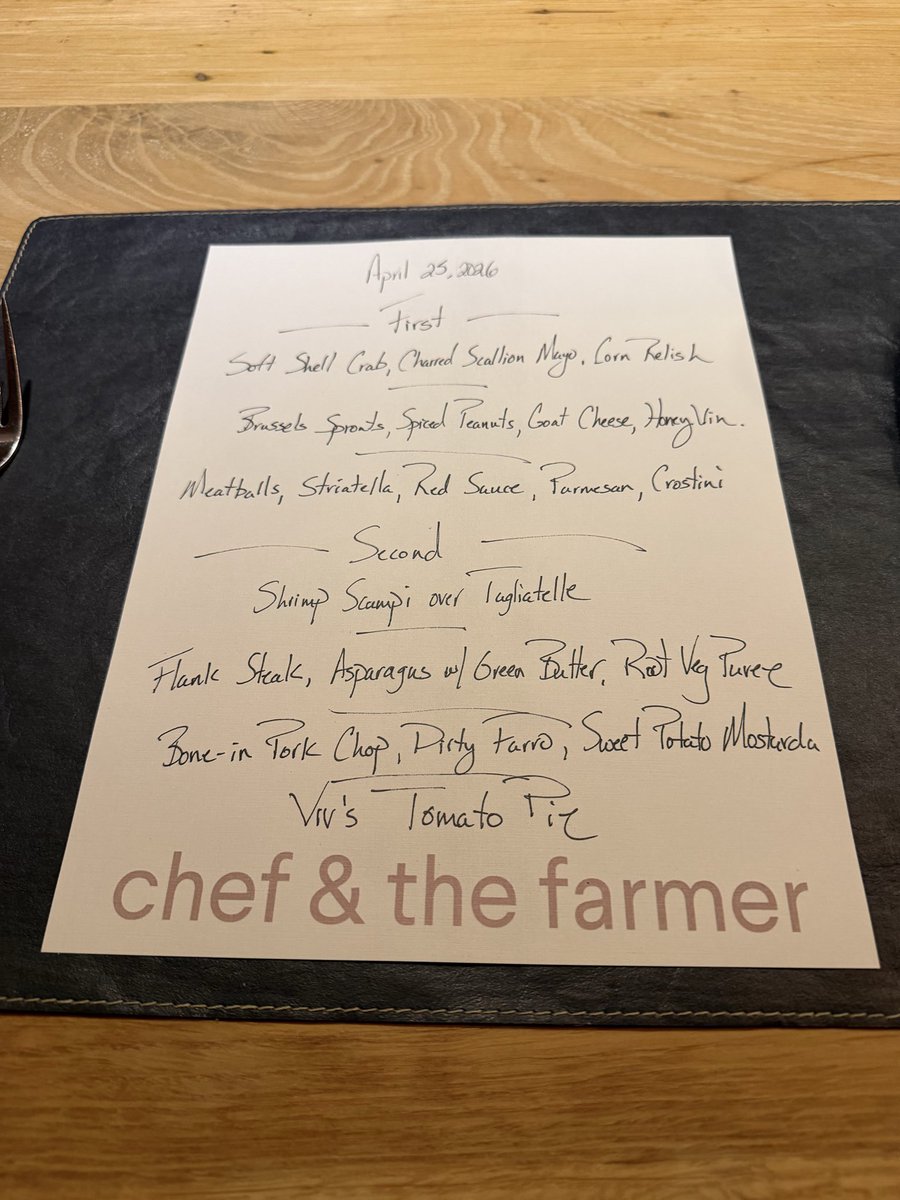 April 25, 2026
First
Soft Shell Crab, Charred Scallion Mayo, Corn Relish
Brussels Sprouts, Spiced Peanuts, Goat Cheese, Honey Vin.
Meatballs, Striatella, Red Sauce, Parmesan, Crostini
Second
Shrimp Scampi over Tagliatelle
Flank Steak, Asparagus w/ Green Butter, Root Veg Puree
Bone-in Pork Chop, Dirty Farro, Sweet Potato Mostarda
Viv's Tomato Pie
chef & the farmer